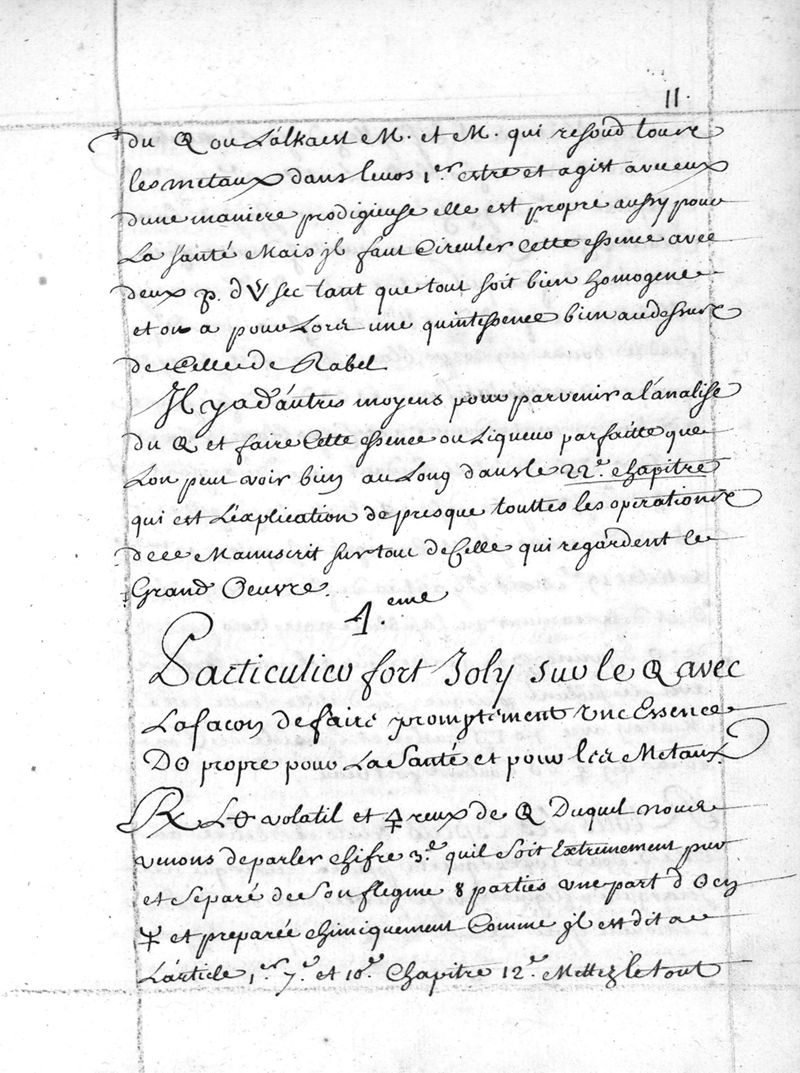 11.
du 🜕 ou L'alkaest M. et M. qui resoud toutx
les metaux dans leurs 1.er estre et agist avec eux
dune maniere prodigieuse elle est propre aussy pour
La santé Mais jl faut Circuler Cette essence avec
deux p. d'🜈 sec tant que tout soit bien homogene
et on a pour Lors une quintessence bien audessus
de Celle de Rabel
Jl y a d'autres moyens pour parvenir a l'analise
du 🜕 et faire Cette essence ou Liqueur parfaitte que
Lon peut voir bien au Long dans le 22.e chapitre
qui est L'explication de presque touttes les operations
de ce Manuscrit sur tout de Celle qui regardent le
Grand Oeuvre.
4.eme
Particulier fort Joly sur le 🜕 avec
La façon de faire promptement vne Essence
D☉ propre pour La Santé et pour les Metaux.
℞ L🜔 volatil et 🜍reux de 🜕 Duquel nous
venons de parler chifre 3.e quil soit Extremement pur
et separé de son flegme 8 parties vne part d☉ en
🜍 et preparée chimiquement Comme jl est dit a
L'article 1.er 7.e et 10.e Chapitre 12.e Mettez le tout